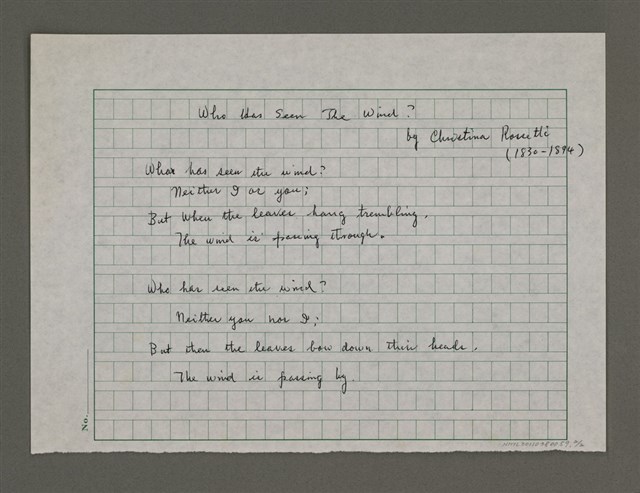 Who Has Seen The Wind?
by Christina Rossetti
(1830-1894)
Who has seen the wind?
Neither I or you;
But when the leaves hang trembling.
The wind is passing through.
Who has seen the wind?
Neither you nor I;
But then the leaves bow down their heads.
The wind is passing by.
No.